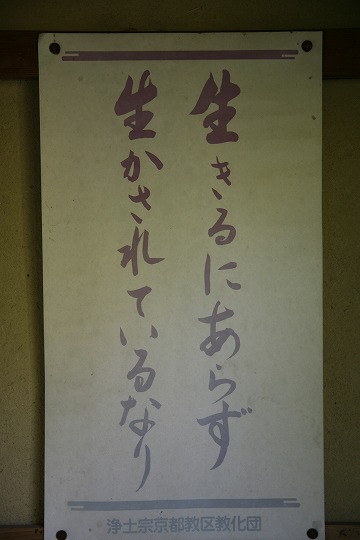 生きるにあらず
生かされているなり
浄土宗京都教区教化団